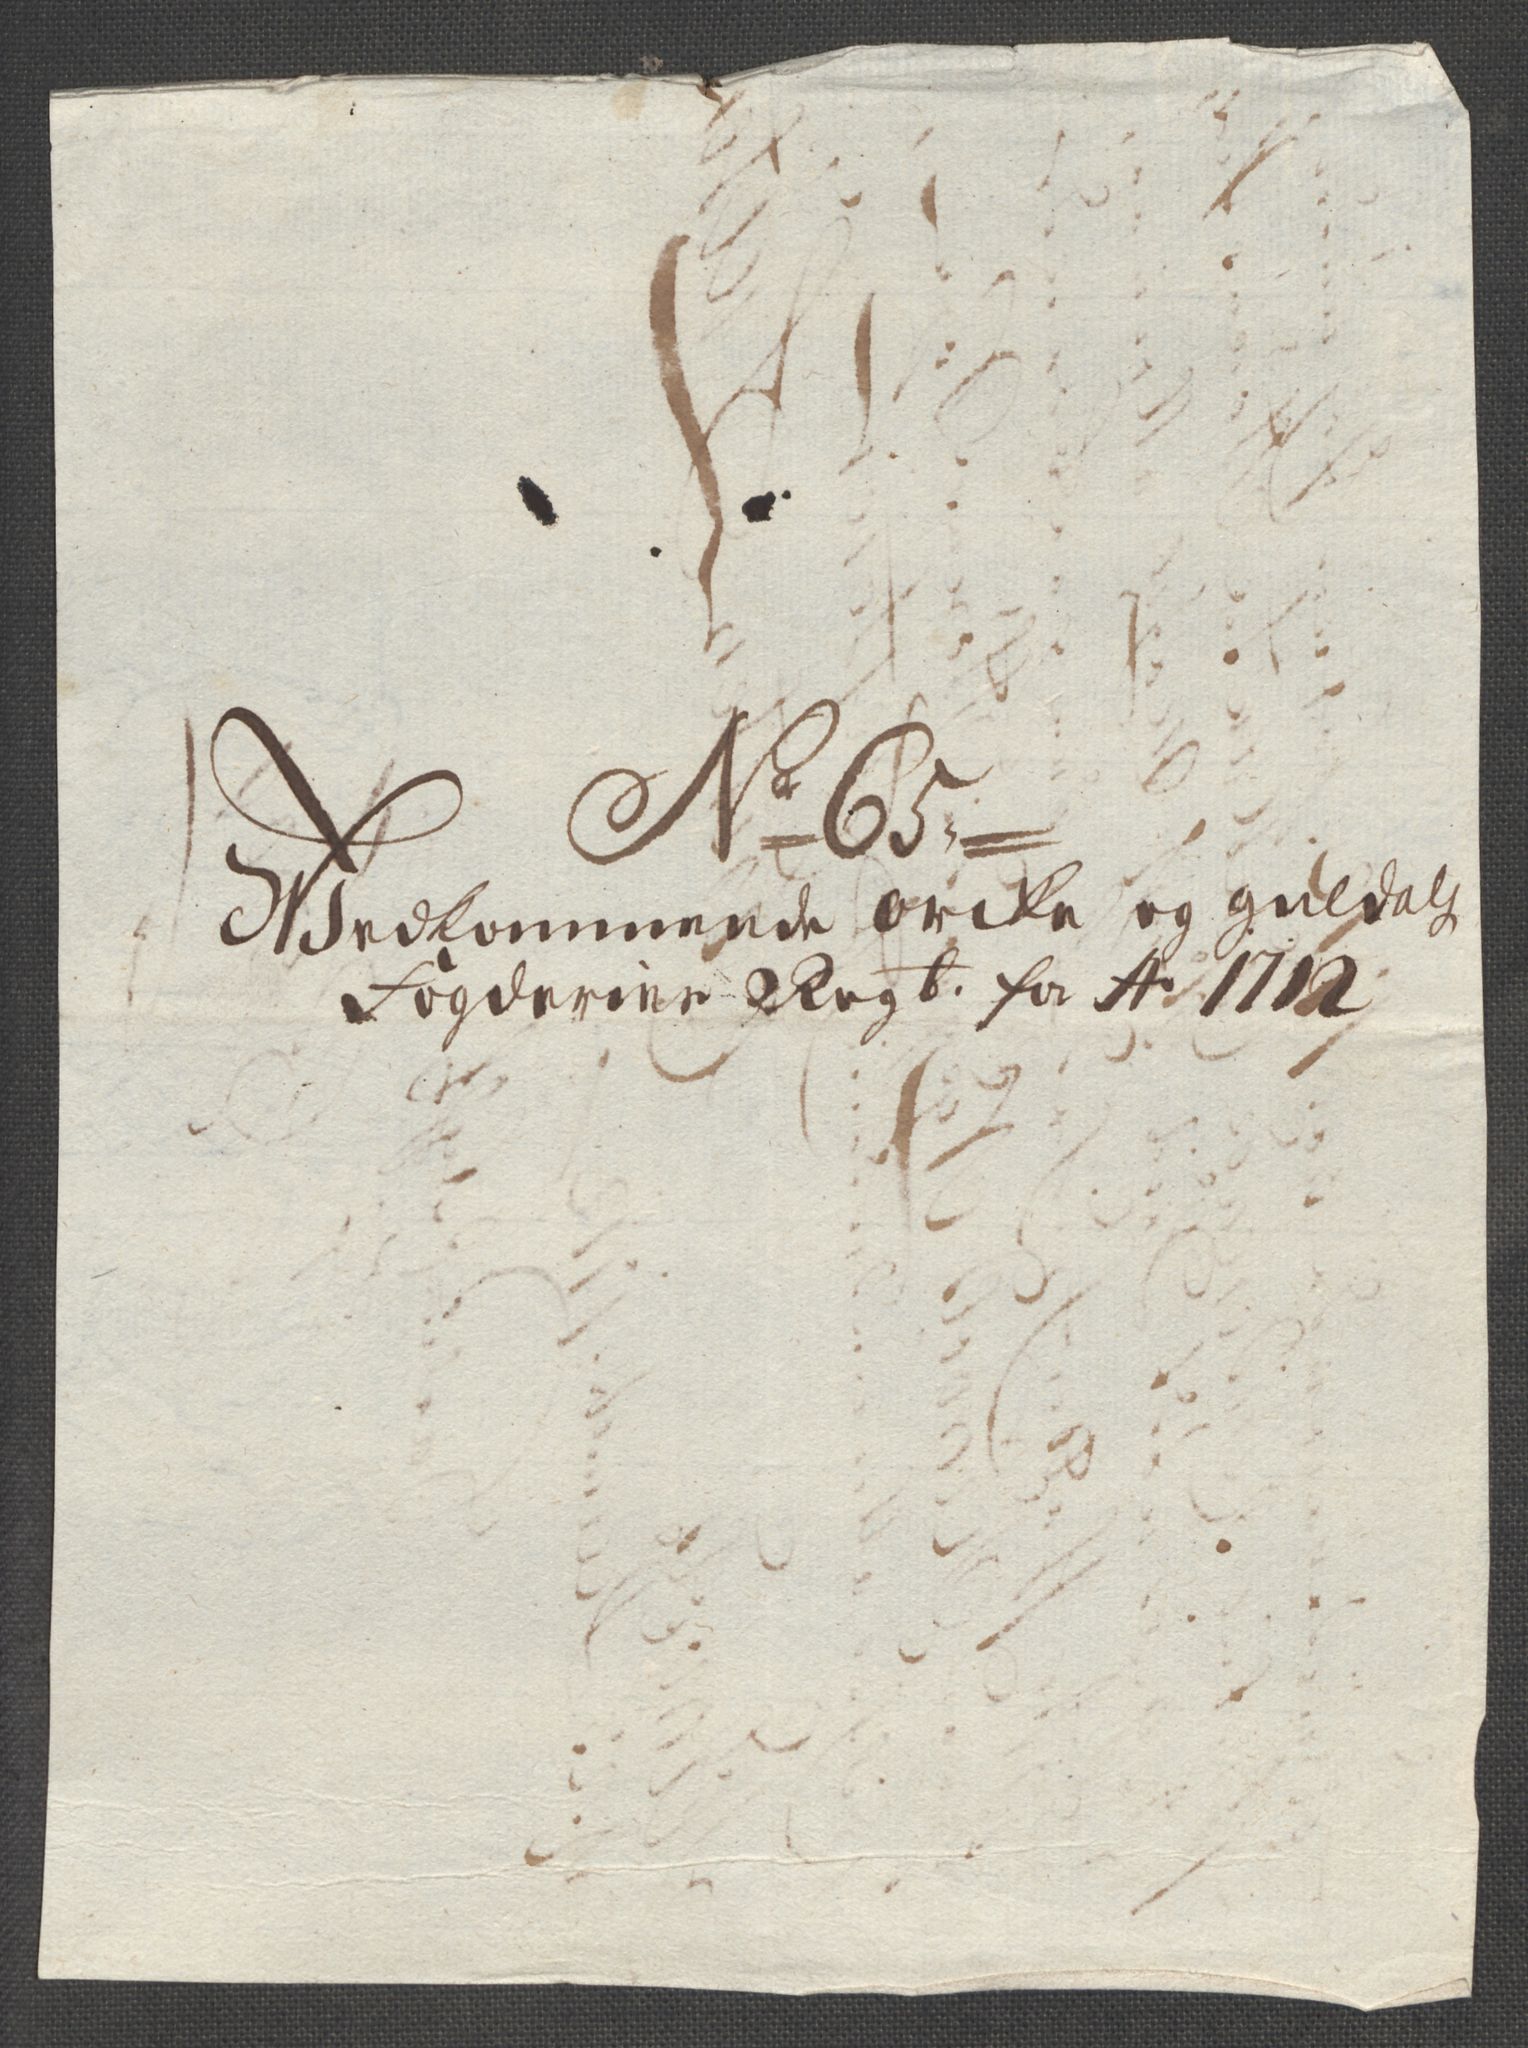 No 65,
Wedkommende orcke og guldals
Fogderier Regb. for Ao 1712